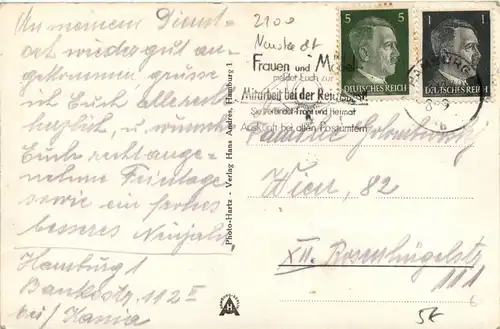 An meinem Dienst-
ort wieder gut an-
gekommen, grüsse
ich Euch allerseits
herzlich, u. wünsche
Euch recht ange-
nehme Feiertage
sowie ein frohes
besseres Neujahr
Hamburg 1
Bankestr. 112 II
bei Kania
Photo-Hartz - Verlag Hans Andres, Hamburg 1
2100
Neustadt
Frauen und
meldet Euch zur
Mitarbeit bei der
Sie verbindet Front und Heimat
Auskunft bei allen Postämtern
5 5
DEUTSCHES REICH
1 1
DEUTSCHES REICH
HAMBURG
b
Familie
Wien, 82
XII. Rosenhügelstr.
111
H
5€
6